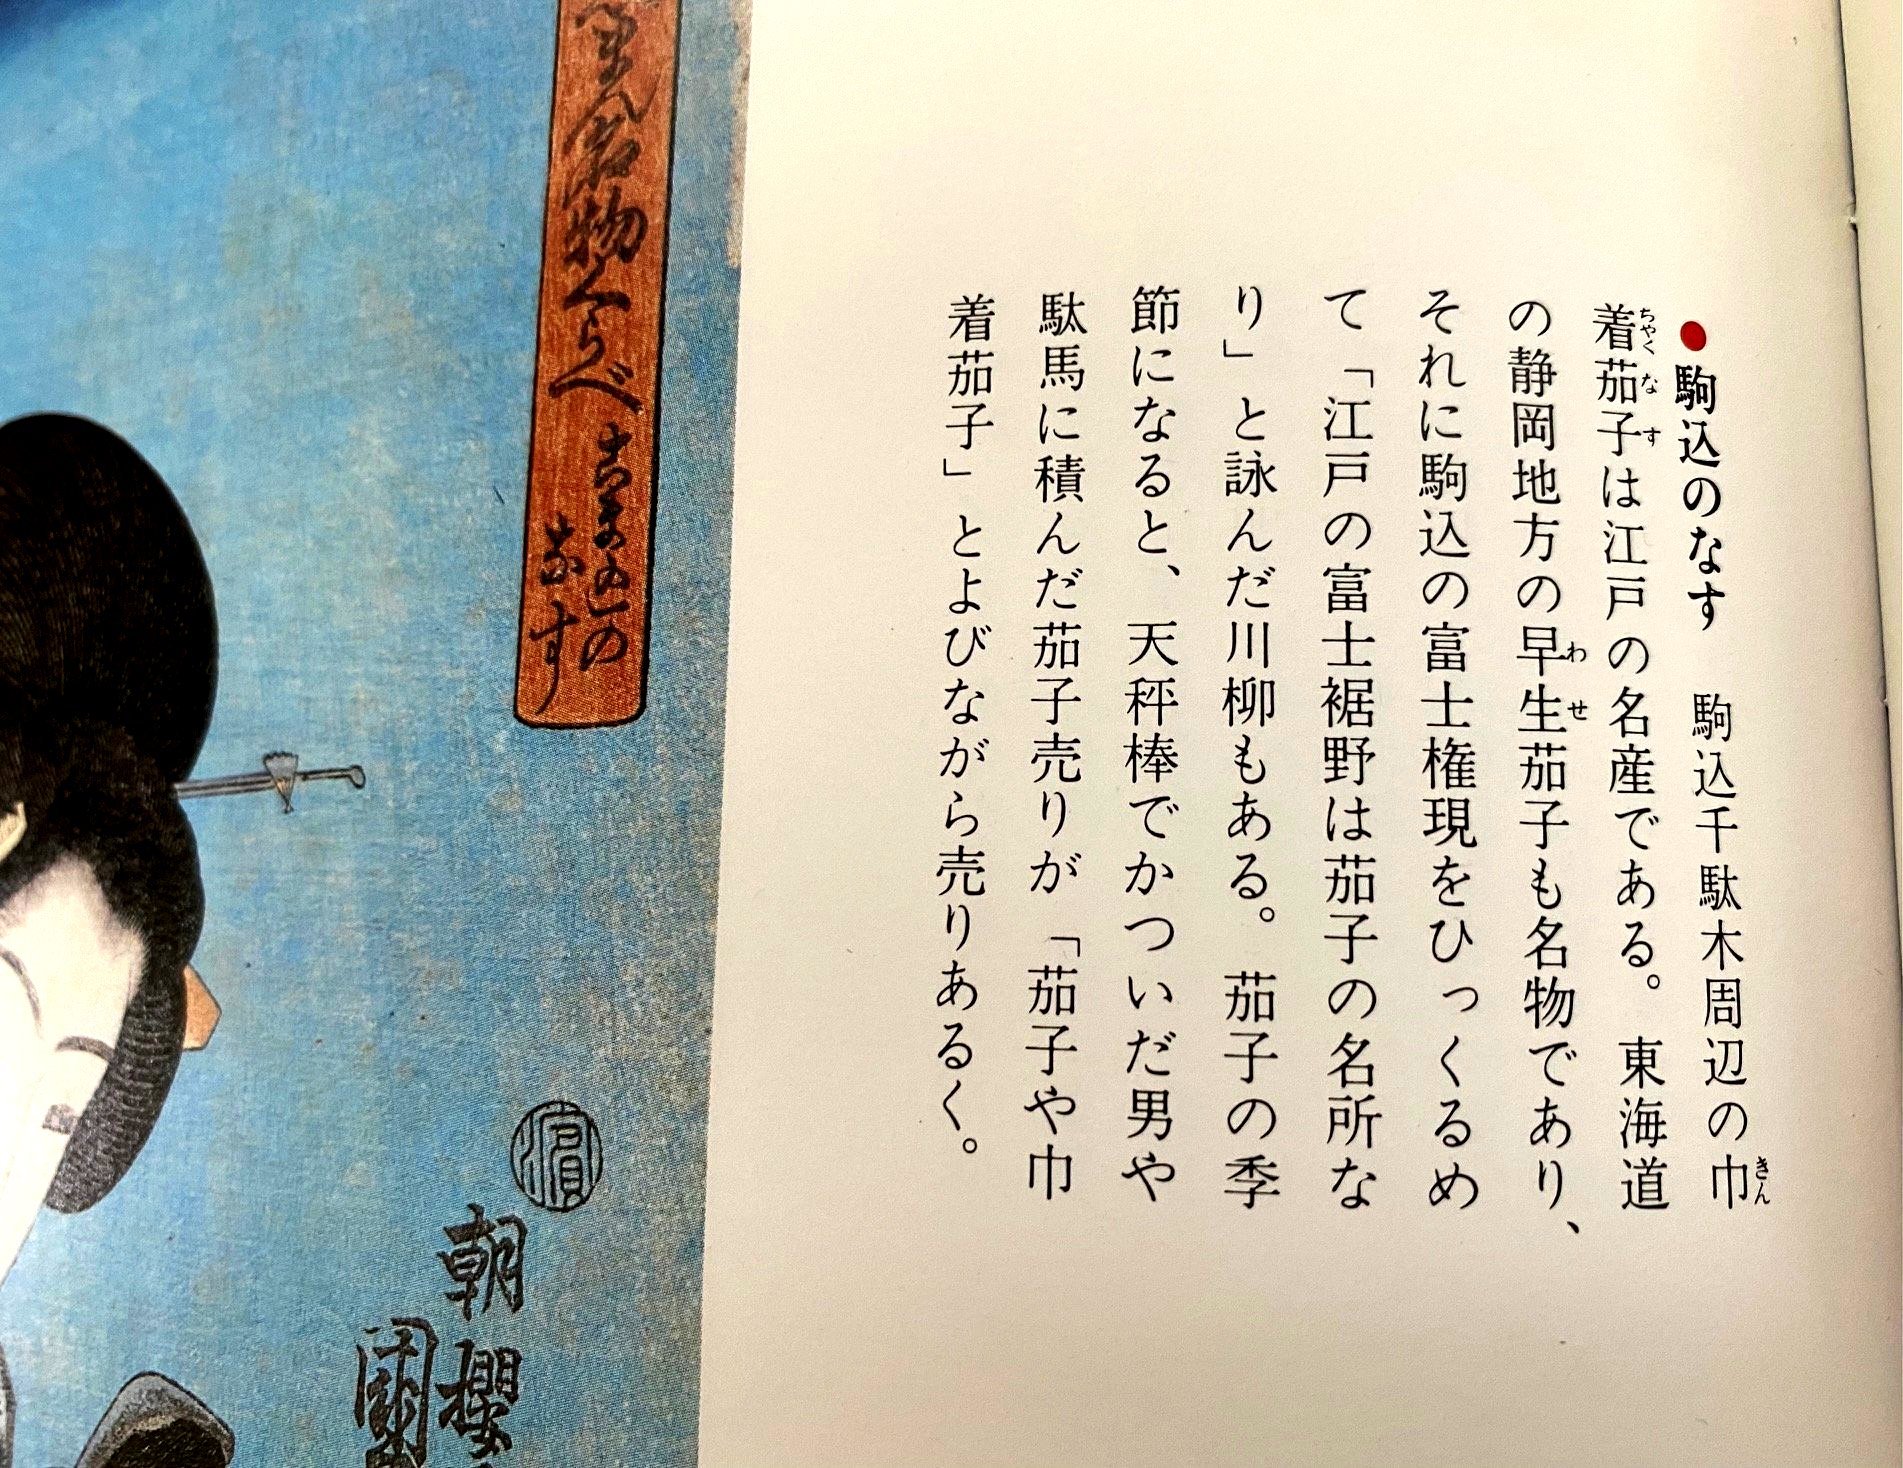 ●駒込のなす　駒込千駄木周辺の巾
着茄子は江戸の名産である。東海道
の静岡地方の早生茄子も名物であり、
それに駒込の富士権現をひっくるめ
て「江戸の富士裾野は茄子の名所な
り」と詠んだ川柳もある。茄子の季
節になると、天秤棒でかついだ男や
駄馬に積んだ茄子売りが「茄子や巾
着茄子」とよびながら売りあるく。
名物くらべ
の
なす
濱
朝櫻